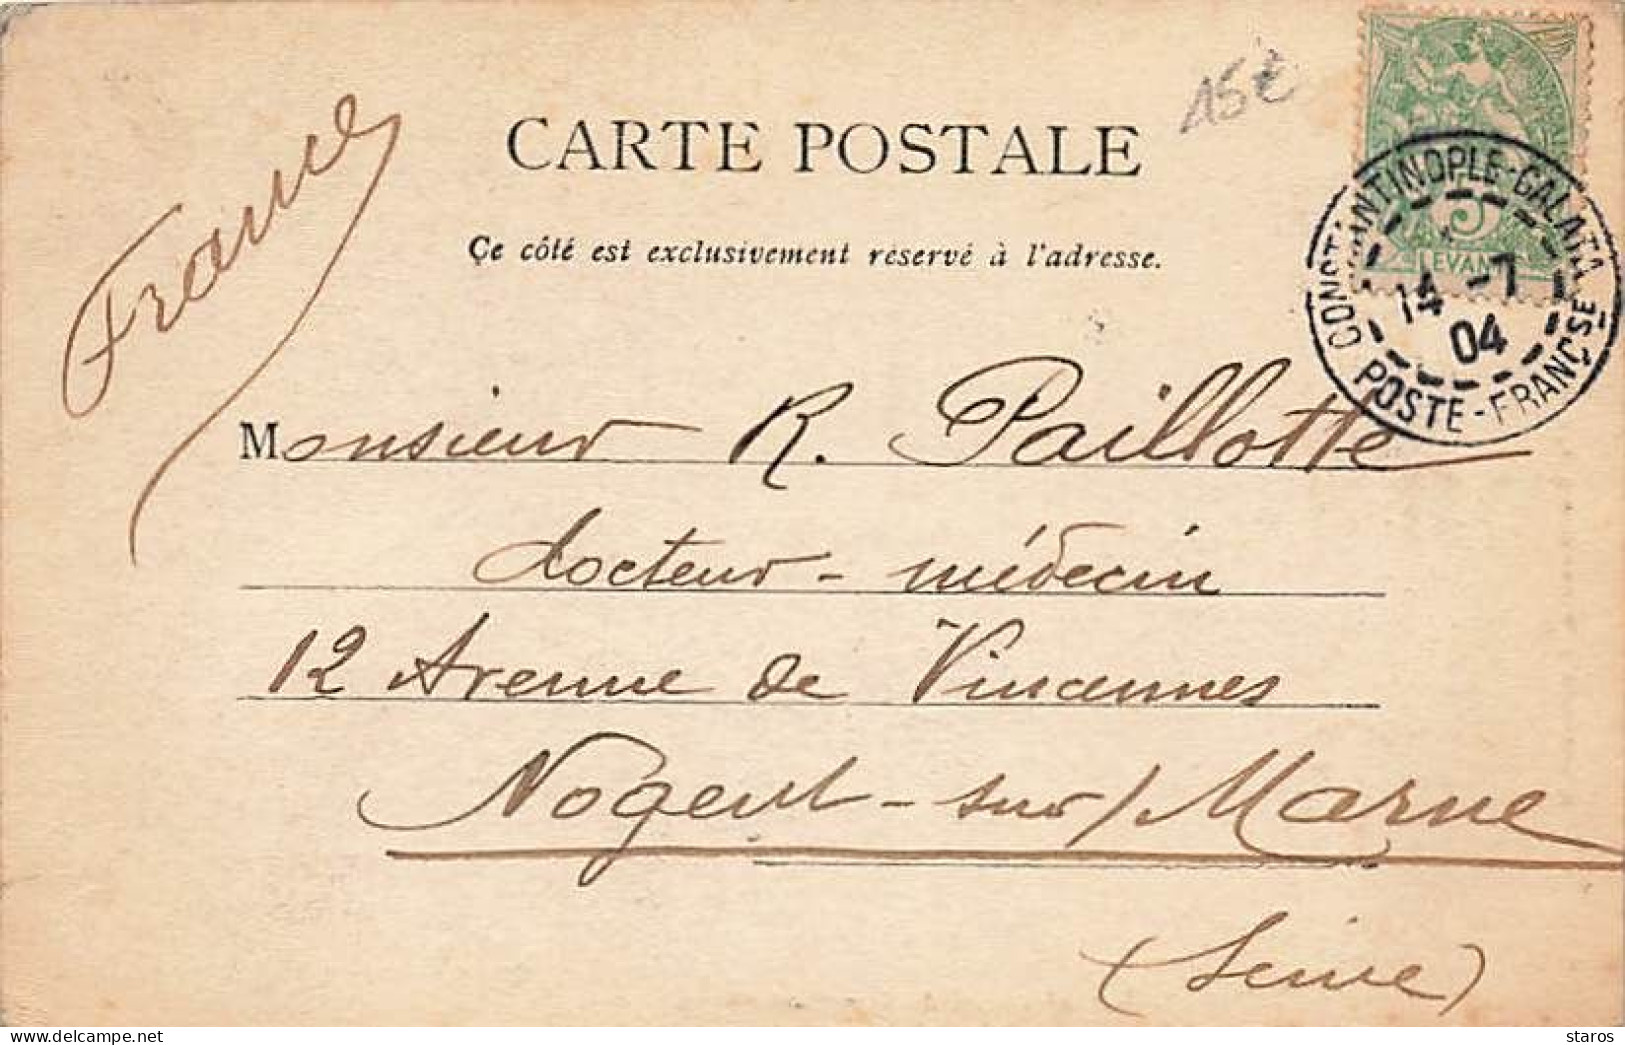 CARTE POSTALE
Ce côté est exclusivement réservé à l'adresse.
15€
France
5
LEVANT
CONSTANTINOPLE-GALATA
14 -7
04
POSTE-FRANÇSE
Monsieur R. Paillotte
docteur-médecin
12 Avenue de Vincennes
Nogent-sur/Marne
(Seine)
www.delcampe.net
staros